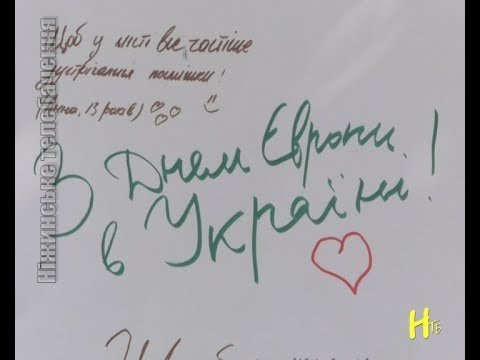 Щоб у місті все частіше
зустрічались посмішки!
13 років)
З Днем Європи
в Україні!
Ніжинське телебачення
НТБ